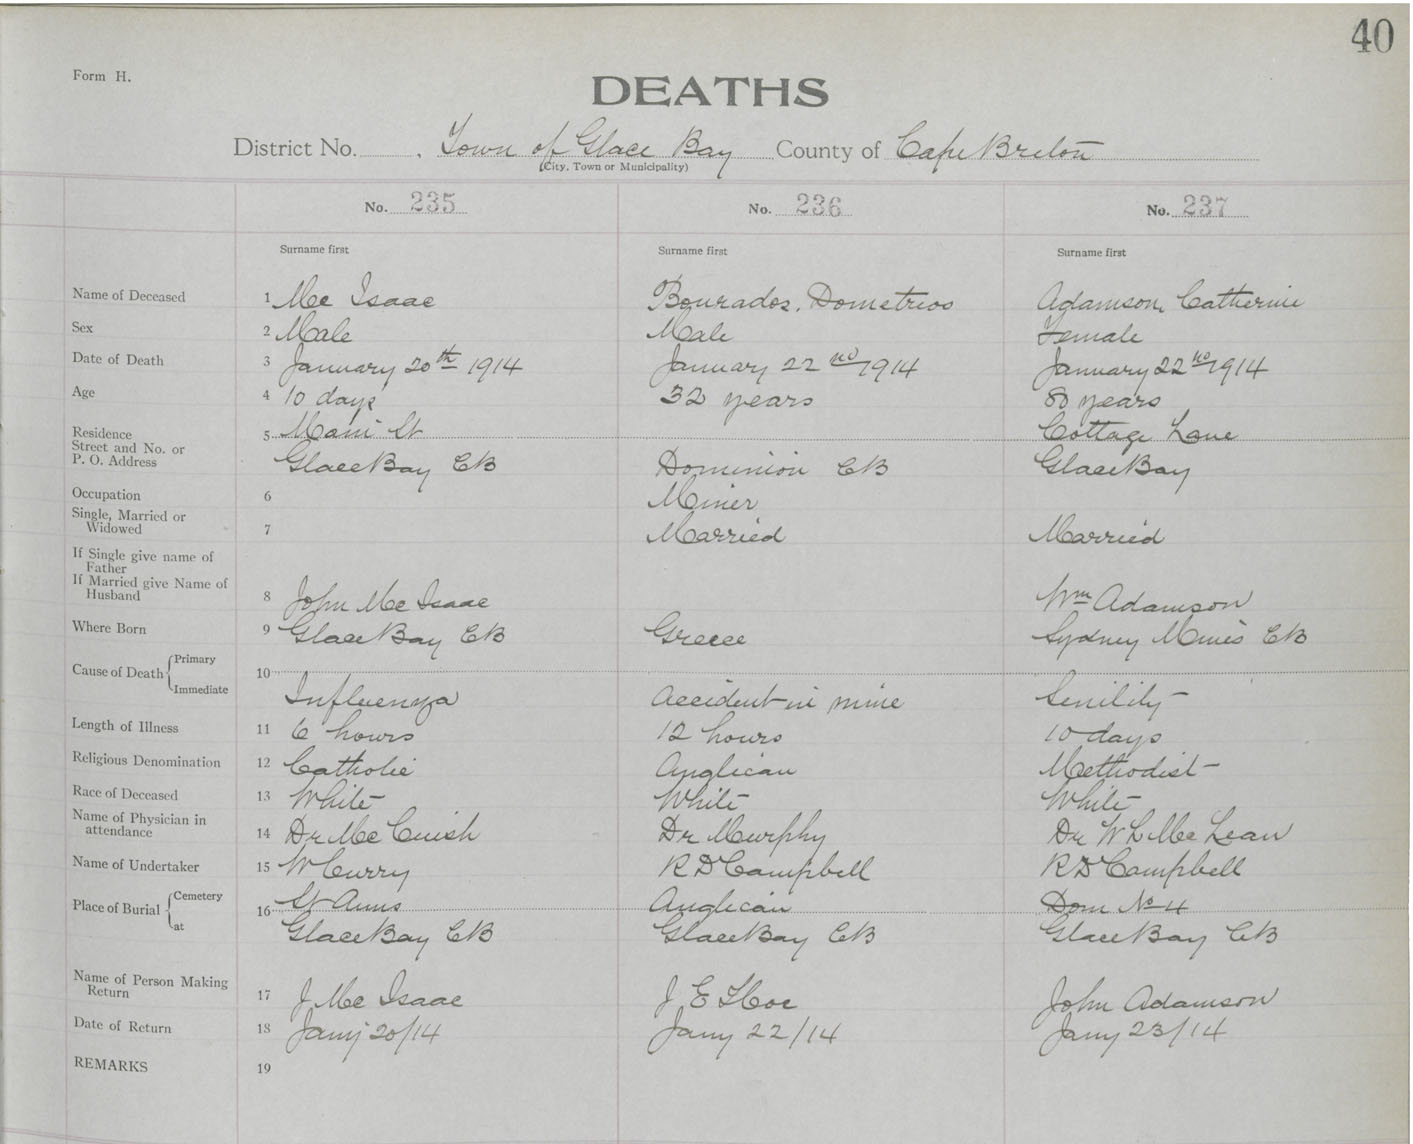 40
Form H.
DEATHS
District No. . Town of Glace Bay County of Cape Breton
(City, Town or Municipality)
No. 235 No. 236 No. 237
Surname first Surname first Surname first
Name of Deceased 1 Mc Isaac Bourados, Dometrios Adamson, Catherine
Sex 2 Male Male Female
Date of Death 3 January 20th 1914 January 22nd 1914 January 22nd 1914
Age 4 10 days 32 years 80 years
Residence 5 Main St Cottage Lane
Street and No. or
P. O. Address Glace Bay CB Dominion CB Glace Bay
Occupation 6 Miner
Single, Married or
Widowed 7 Married Married
If Single give name of
Father
If Married give Name of
Husband 8 John Mc Isaac Wm Adamson
Where Born 9 Glace Bay CB Greece Sydney Mines CB
Cause of Death Primary 10
Immediate Influenza Accident in mine Senility
Length of Illness 11 6 hours 12 hours 10 days
Religious Denomination 12 Catholic Anglican Methodist
Race of Deceased 13 White White White
Name of Physician in
attendance 14 Dr Mc Cuish Dr Murphy Dr W L Mc Lean
Name of Undertaker 15 W Curry R D Campbell R D Campbell
Place of Burial Cemetery 16 St Anns Anglican Dom No 4
at Glace Bay CB Glace Bay CB Glace Bay CB
Name of Person Making
Return 17 J Mc Isaac J E John Adamson
Date of Return 18 Jany 20/14 Jany 22/14 Jany 23/14
REMARKS 19